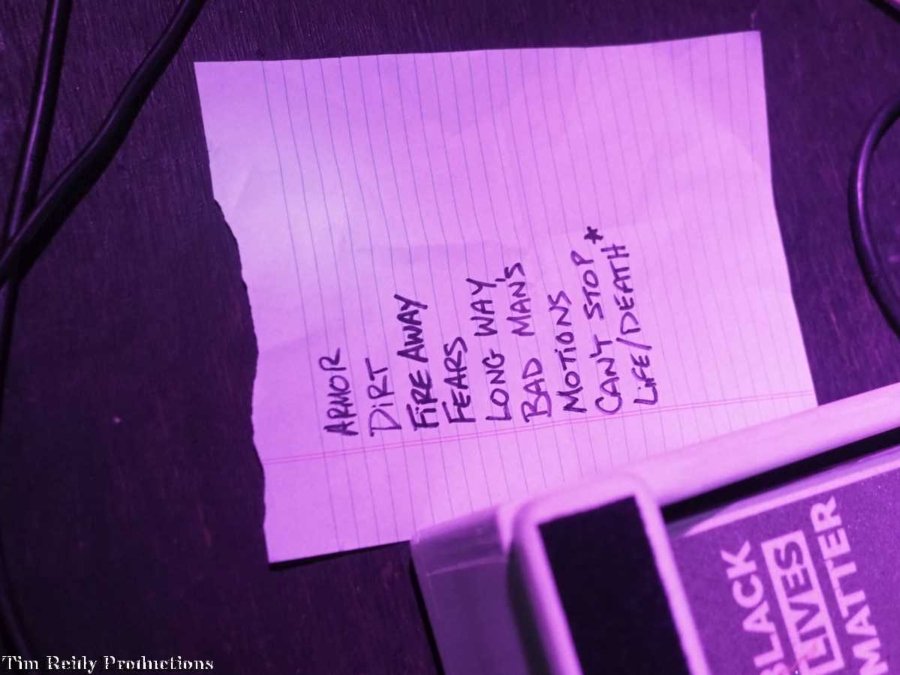 ARMOR
DIRT
FIRE AWAY
FEARS
LONG WAY
BAD MAN'S
MOTIONS
CAN'T STOP *
LIFE/DEATH
BLACK
LIVES
MATTER
Tim Reidy Productions